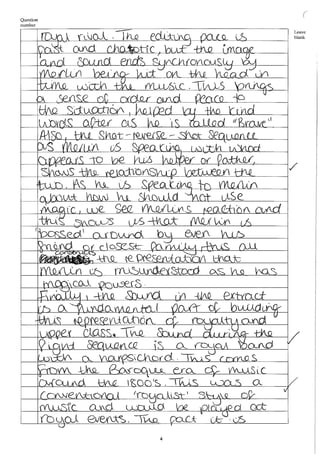 Question
number
Leave
blank
royal rival. The editing pace is
fast and chaotic, but the image
and sound ends synchronously by
Merlin being hit on the head in
time with the music. This brings
a sense of order and peace to
the situation, helped by the kind
words after as he is called "Brave"
Also, the shot-reverse-shot sequence
as Merlin is speaking with what
appears to be his helper or father,
shows the relationship between the
two. As he is speaking to Merlin
about how he should not use
magic, we see Merlins reaction and
this shows us that Merlin is
bossed around by even his
friend or closest family this all
the representation that
Merlin is misunderstood as he has
magical powers.
Finally, the sound in the extract
is a fundamental part of building
this representation of royalty and
upper class. The sound during the
fight sequence is a royal band
with a harpsichord. This comes
from the Baroque era of music
around the 1800's. This was a
conventional 'royalist' style of
music and would be played at
royal events. The fact it is
4